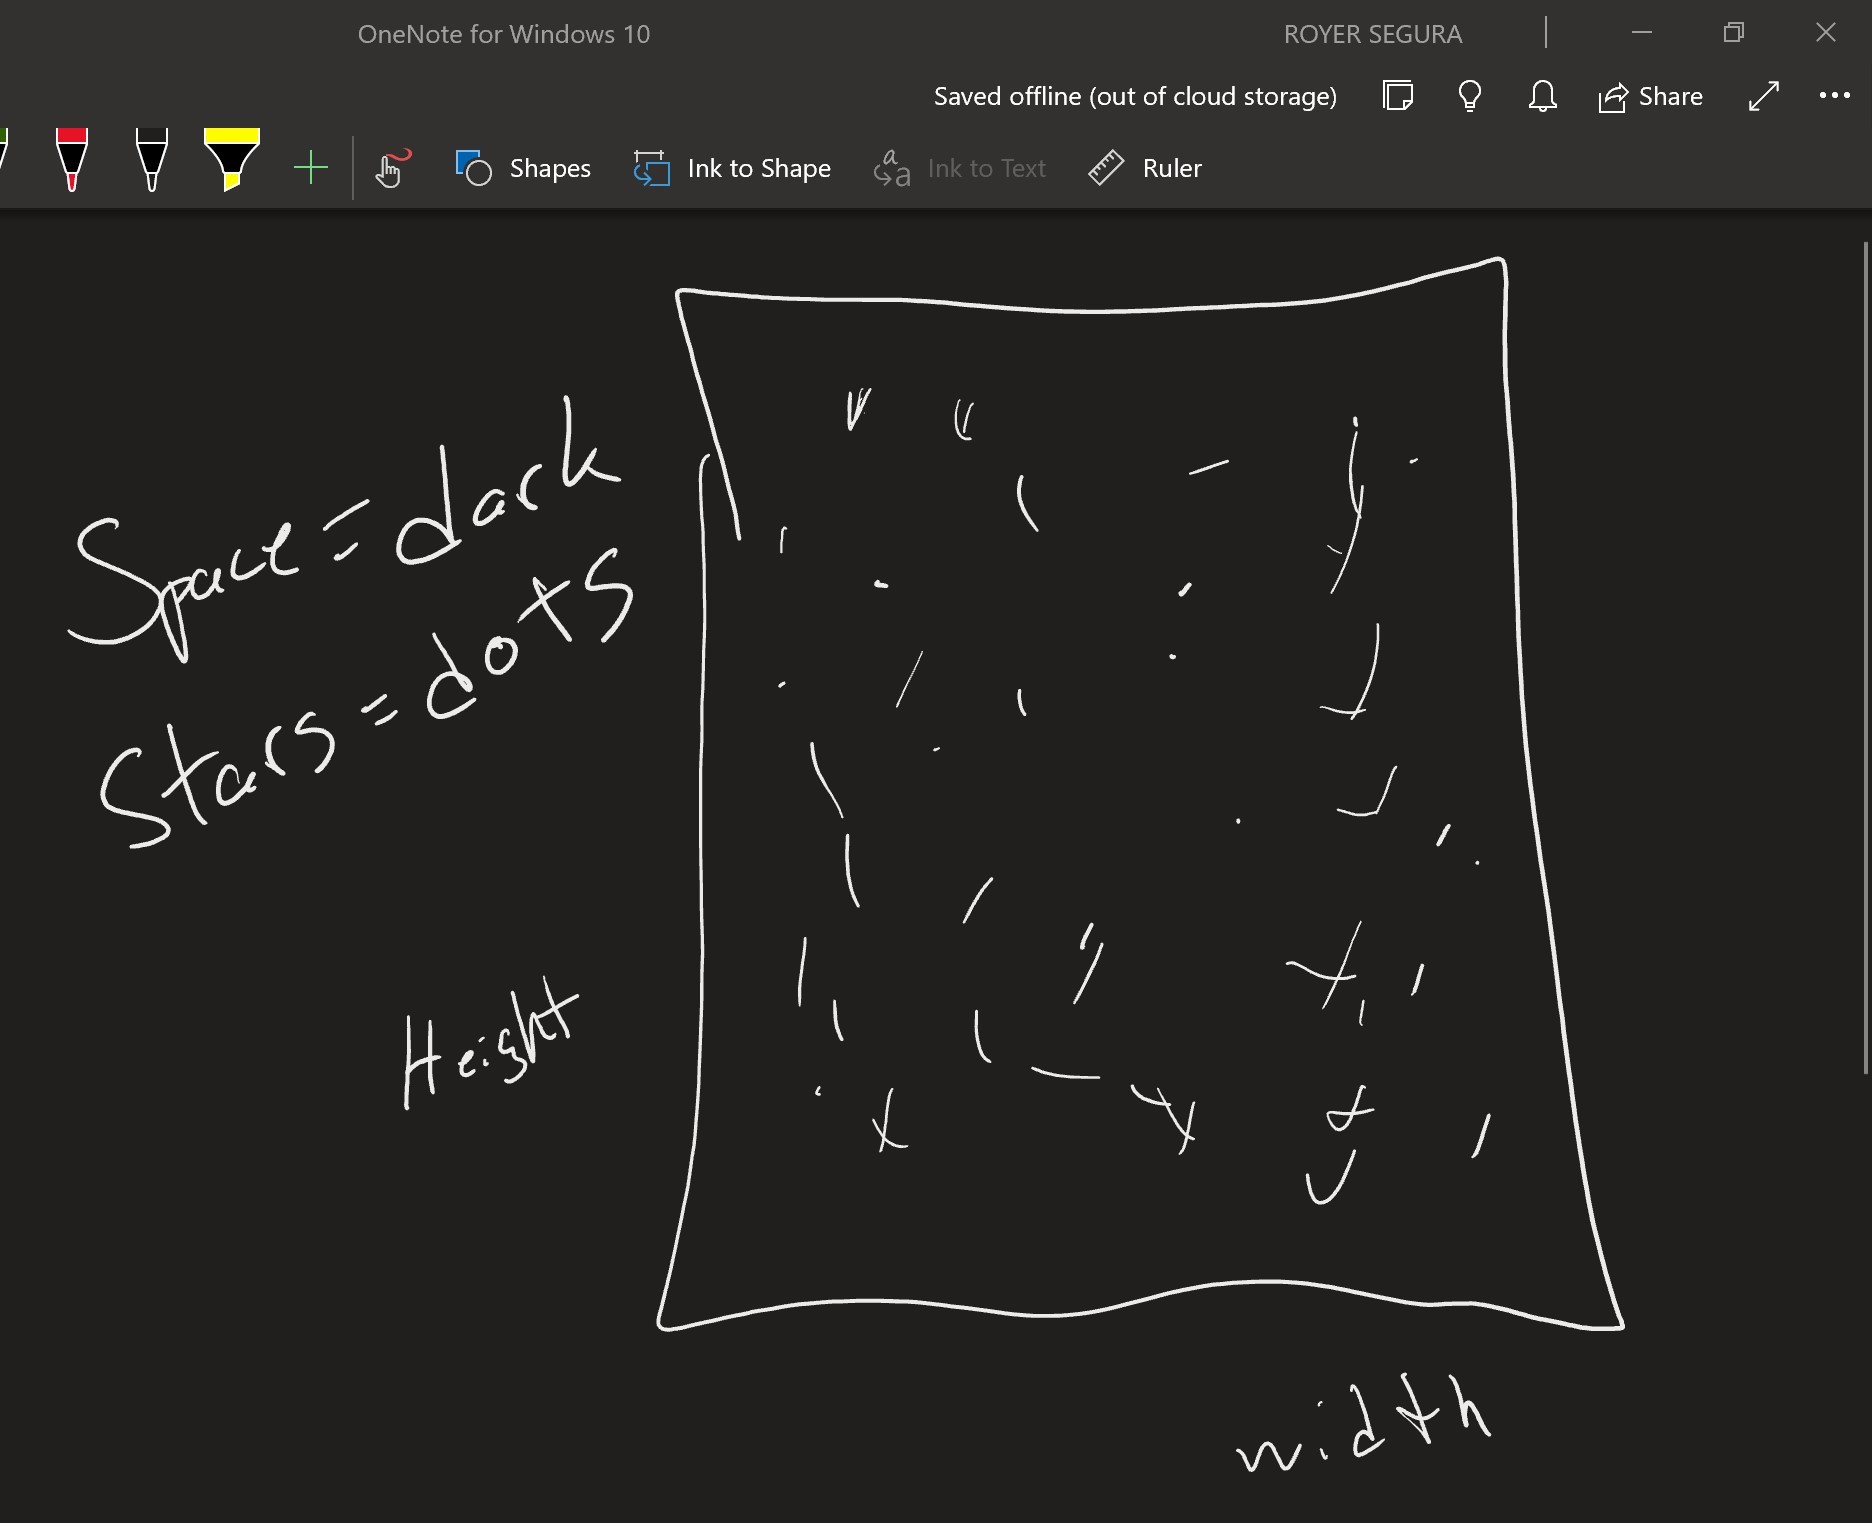 OneNote for Windows 10
ROYER SEGURA
Saved offline (out of cloud storage)
Share
Shapes
Ink to Shape
Ink to Text
Ruler
Space = dark
Stars = dots
Height
width